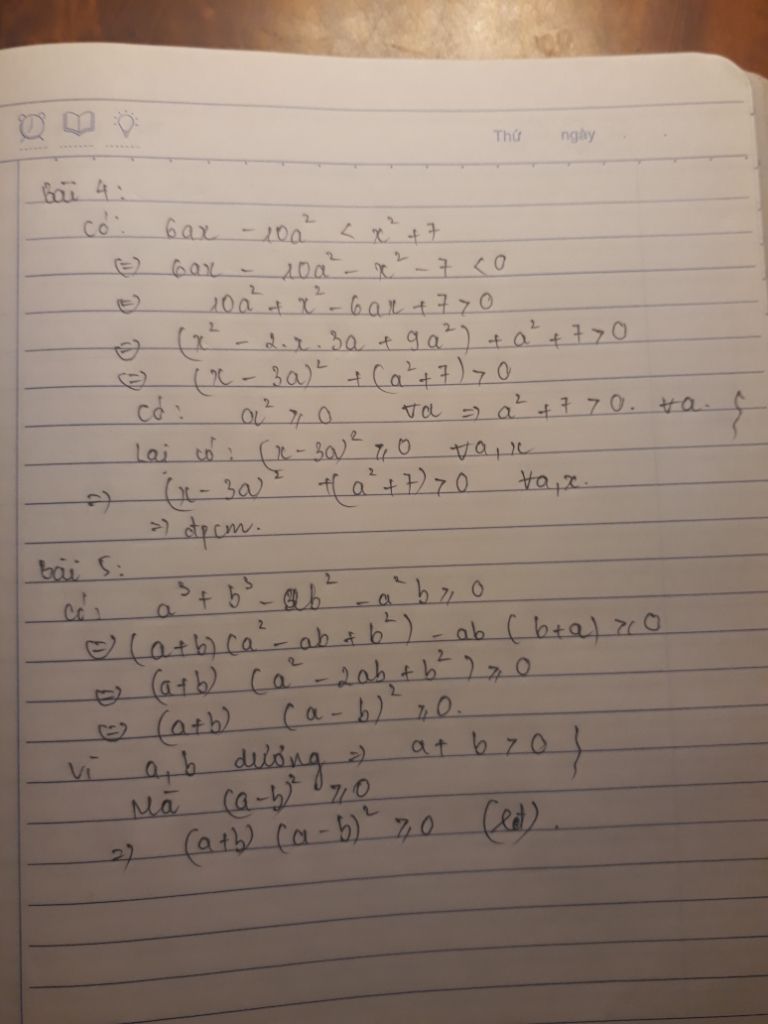 Thứ ngày
Bài 4:
Có: 6ax - 10a² < x² + 7
⇔ 6ax - 10a² - x² - 7 < 0
⇔ 10a² + x² - 6ax + 7 > 0
⇔ (x² - 2.x.3a + 9a²) + a² + 7 > 0
⇔ (x - 3a)² + (a² + 7) > 0
Có: a² ≥ 0 ∀a ⇒ a² + 7 > 0. ∀a. }
Lại có: (x - 3a)² ≥ 0 ∀a, x
⇒ (x - 3a)² + (a² + 7) > 0 ∀a, x.
⇒ đpcm.
Bài 5:
Có: a³ + b³ - ab² - a²b ≥ 0
⇔ (a+b)(a² - ab + b²) - ab (b+a) ≥ 0
⇔ (a+b) (a² - 2ab + b²) ≥ 0
⇔ (a+b) (a - b)² ≥ 0.
Vì a, b dương ⇒ a + b > 0 }
Mà (a-b)² ≥ 0
⇒ (a+b) (a - b)² ≥ 0